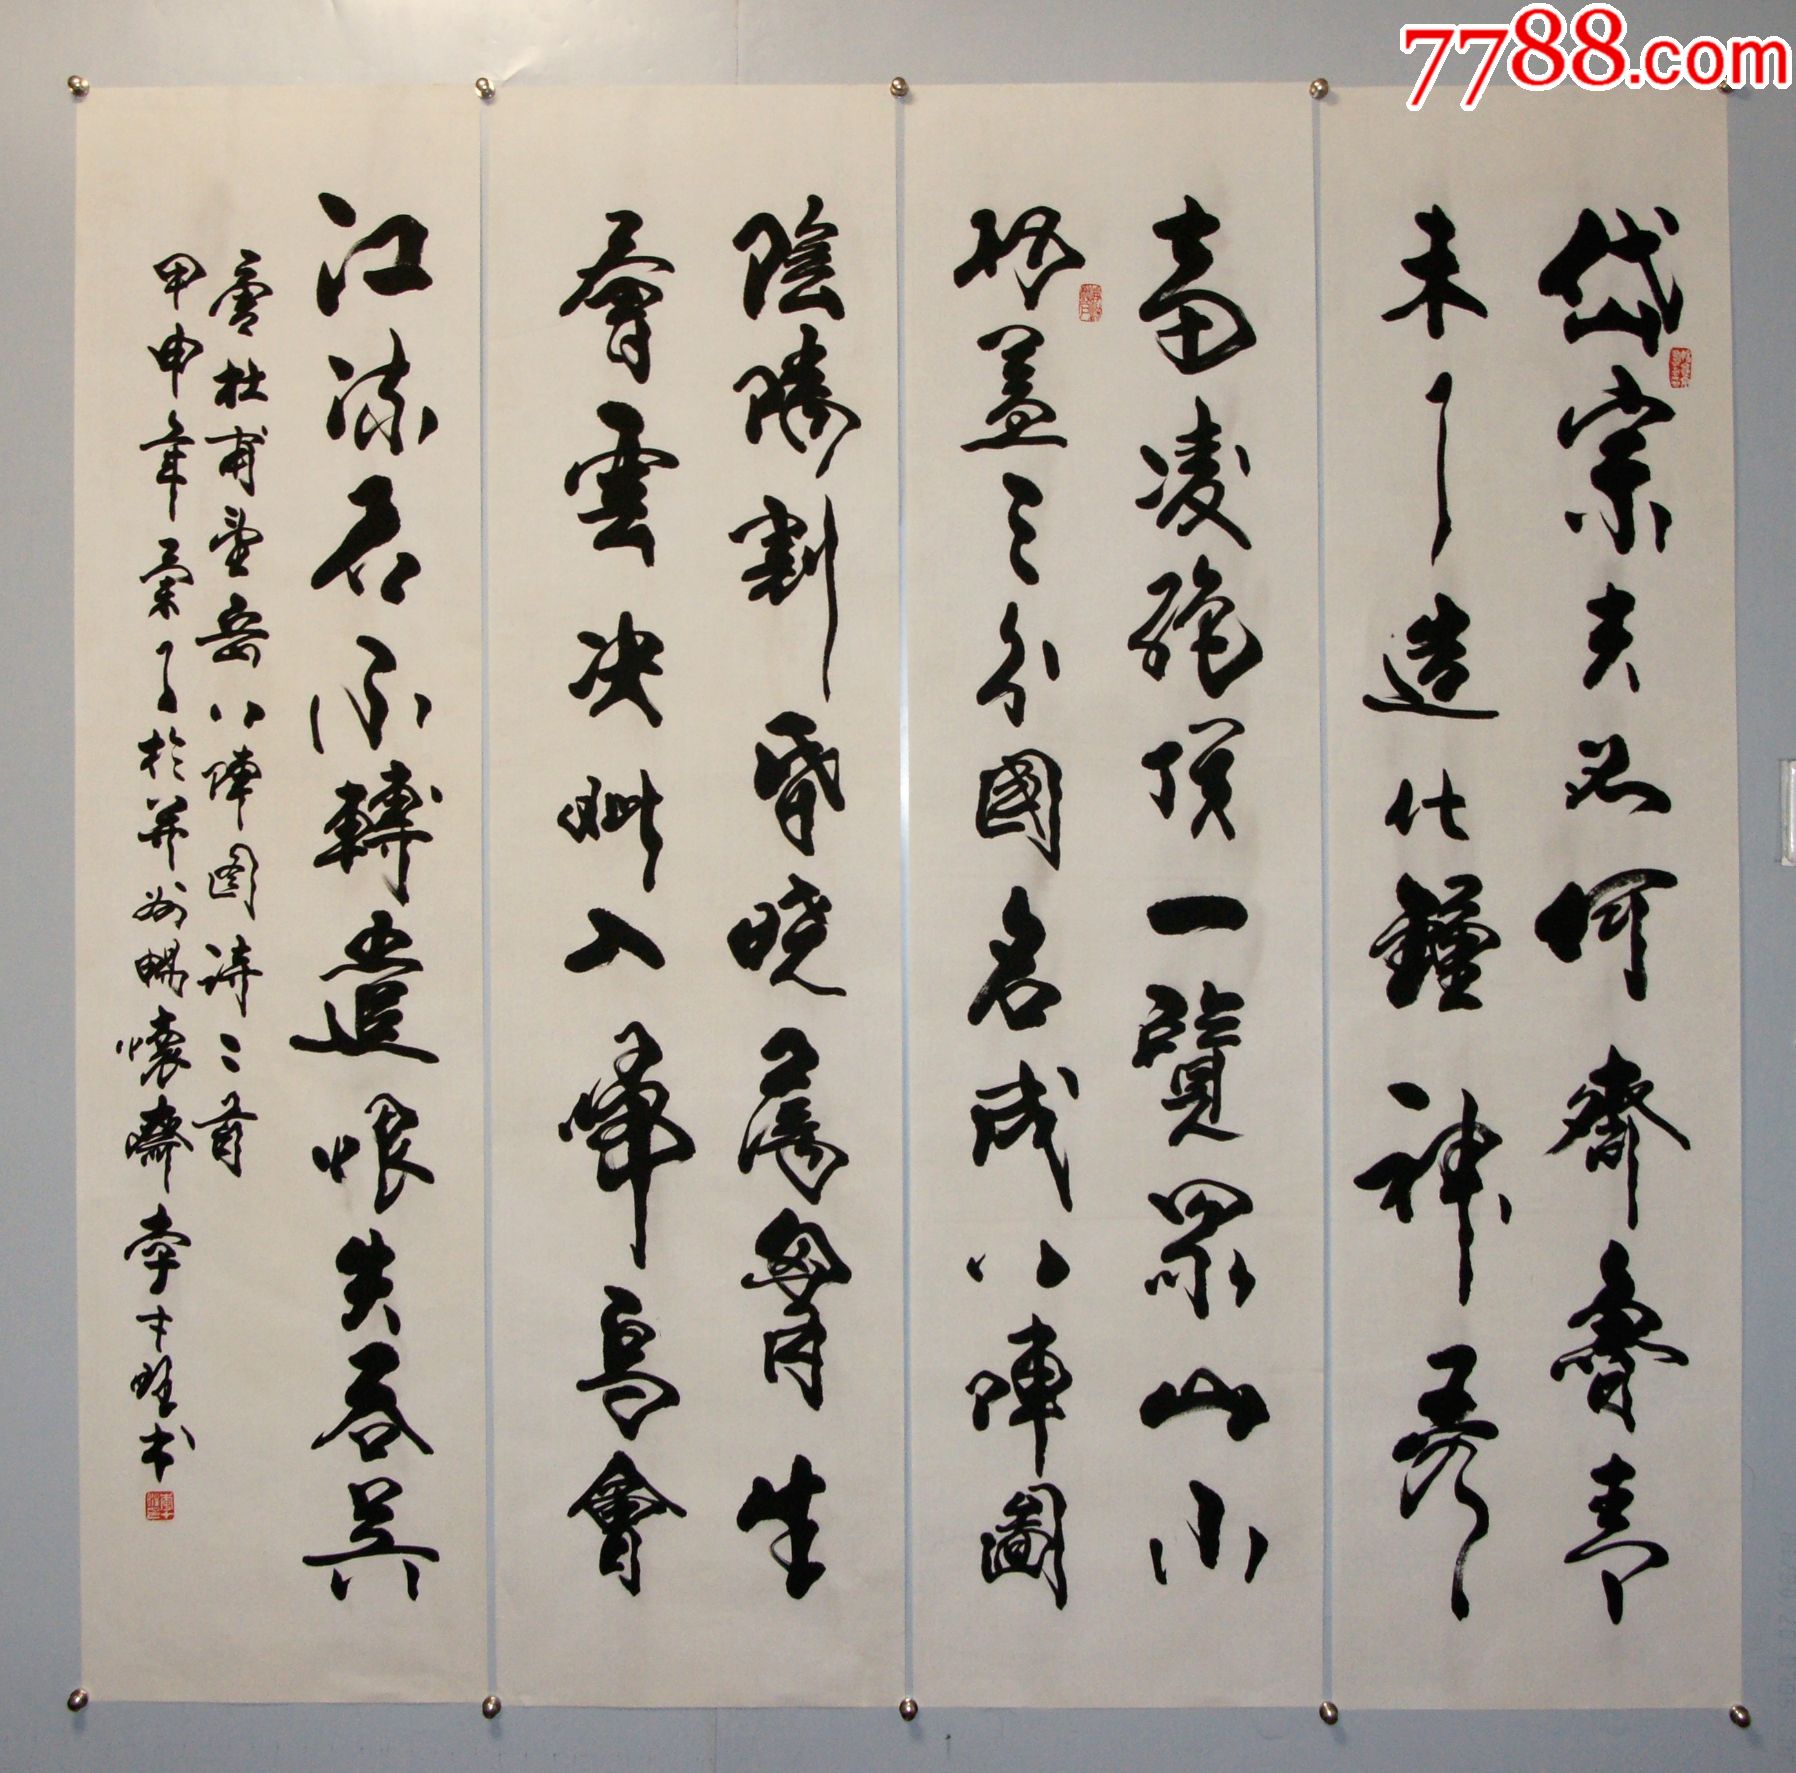 7788.com
岱宗夫如何齊魯青
未了造化鍾神秀
當凌絕頂一覽眾山小
功蓋三分國名成八陣圖
陰陽割昏曉蕩胸生
曾雲決眦入歸鳥會
江流石不轉遺恨失吞吳
書杜甫望岳八陣圖詩二首
甲申年於并州暢懷齋李士書